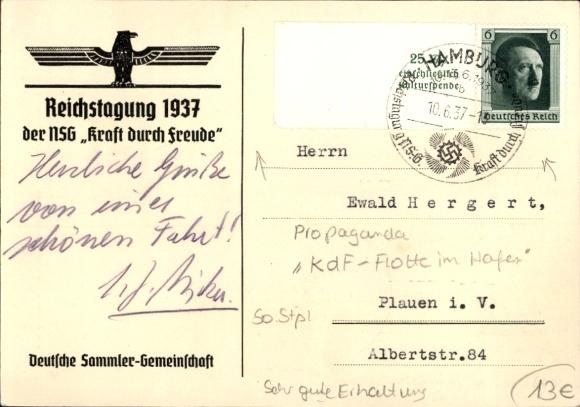 Reichstagung 1937
der NSG „Kraft durch Freude“
Herzliche Grüße
von einer
schönen Fahrt!
Deutsche Sammler-Gemeinschaft
25 Rpf.
einschließlich
Kulturspende
6 6
Deutsches Reich
HAMBURG
10.6.37
Reichstagung NSG Kraft durch
Herrn
Ewald Hergert,
Propaganda
„KdF-Flotte im Hafen“
So Stpl
Plauen i. V.
Albertstr.84
Sehr gute Erhaltung
13€